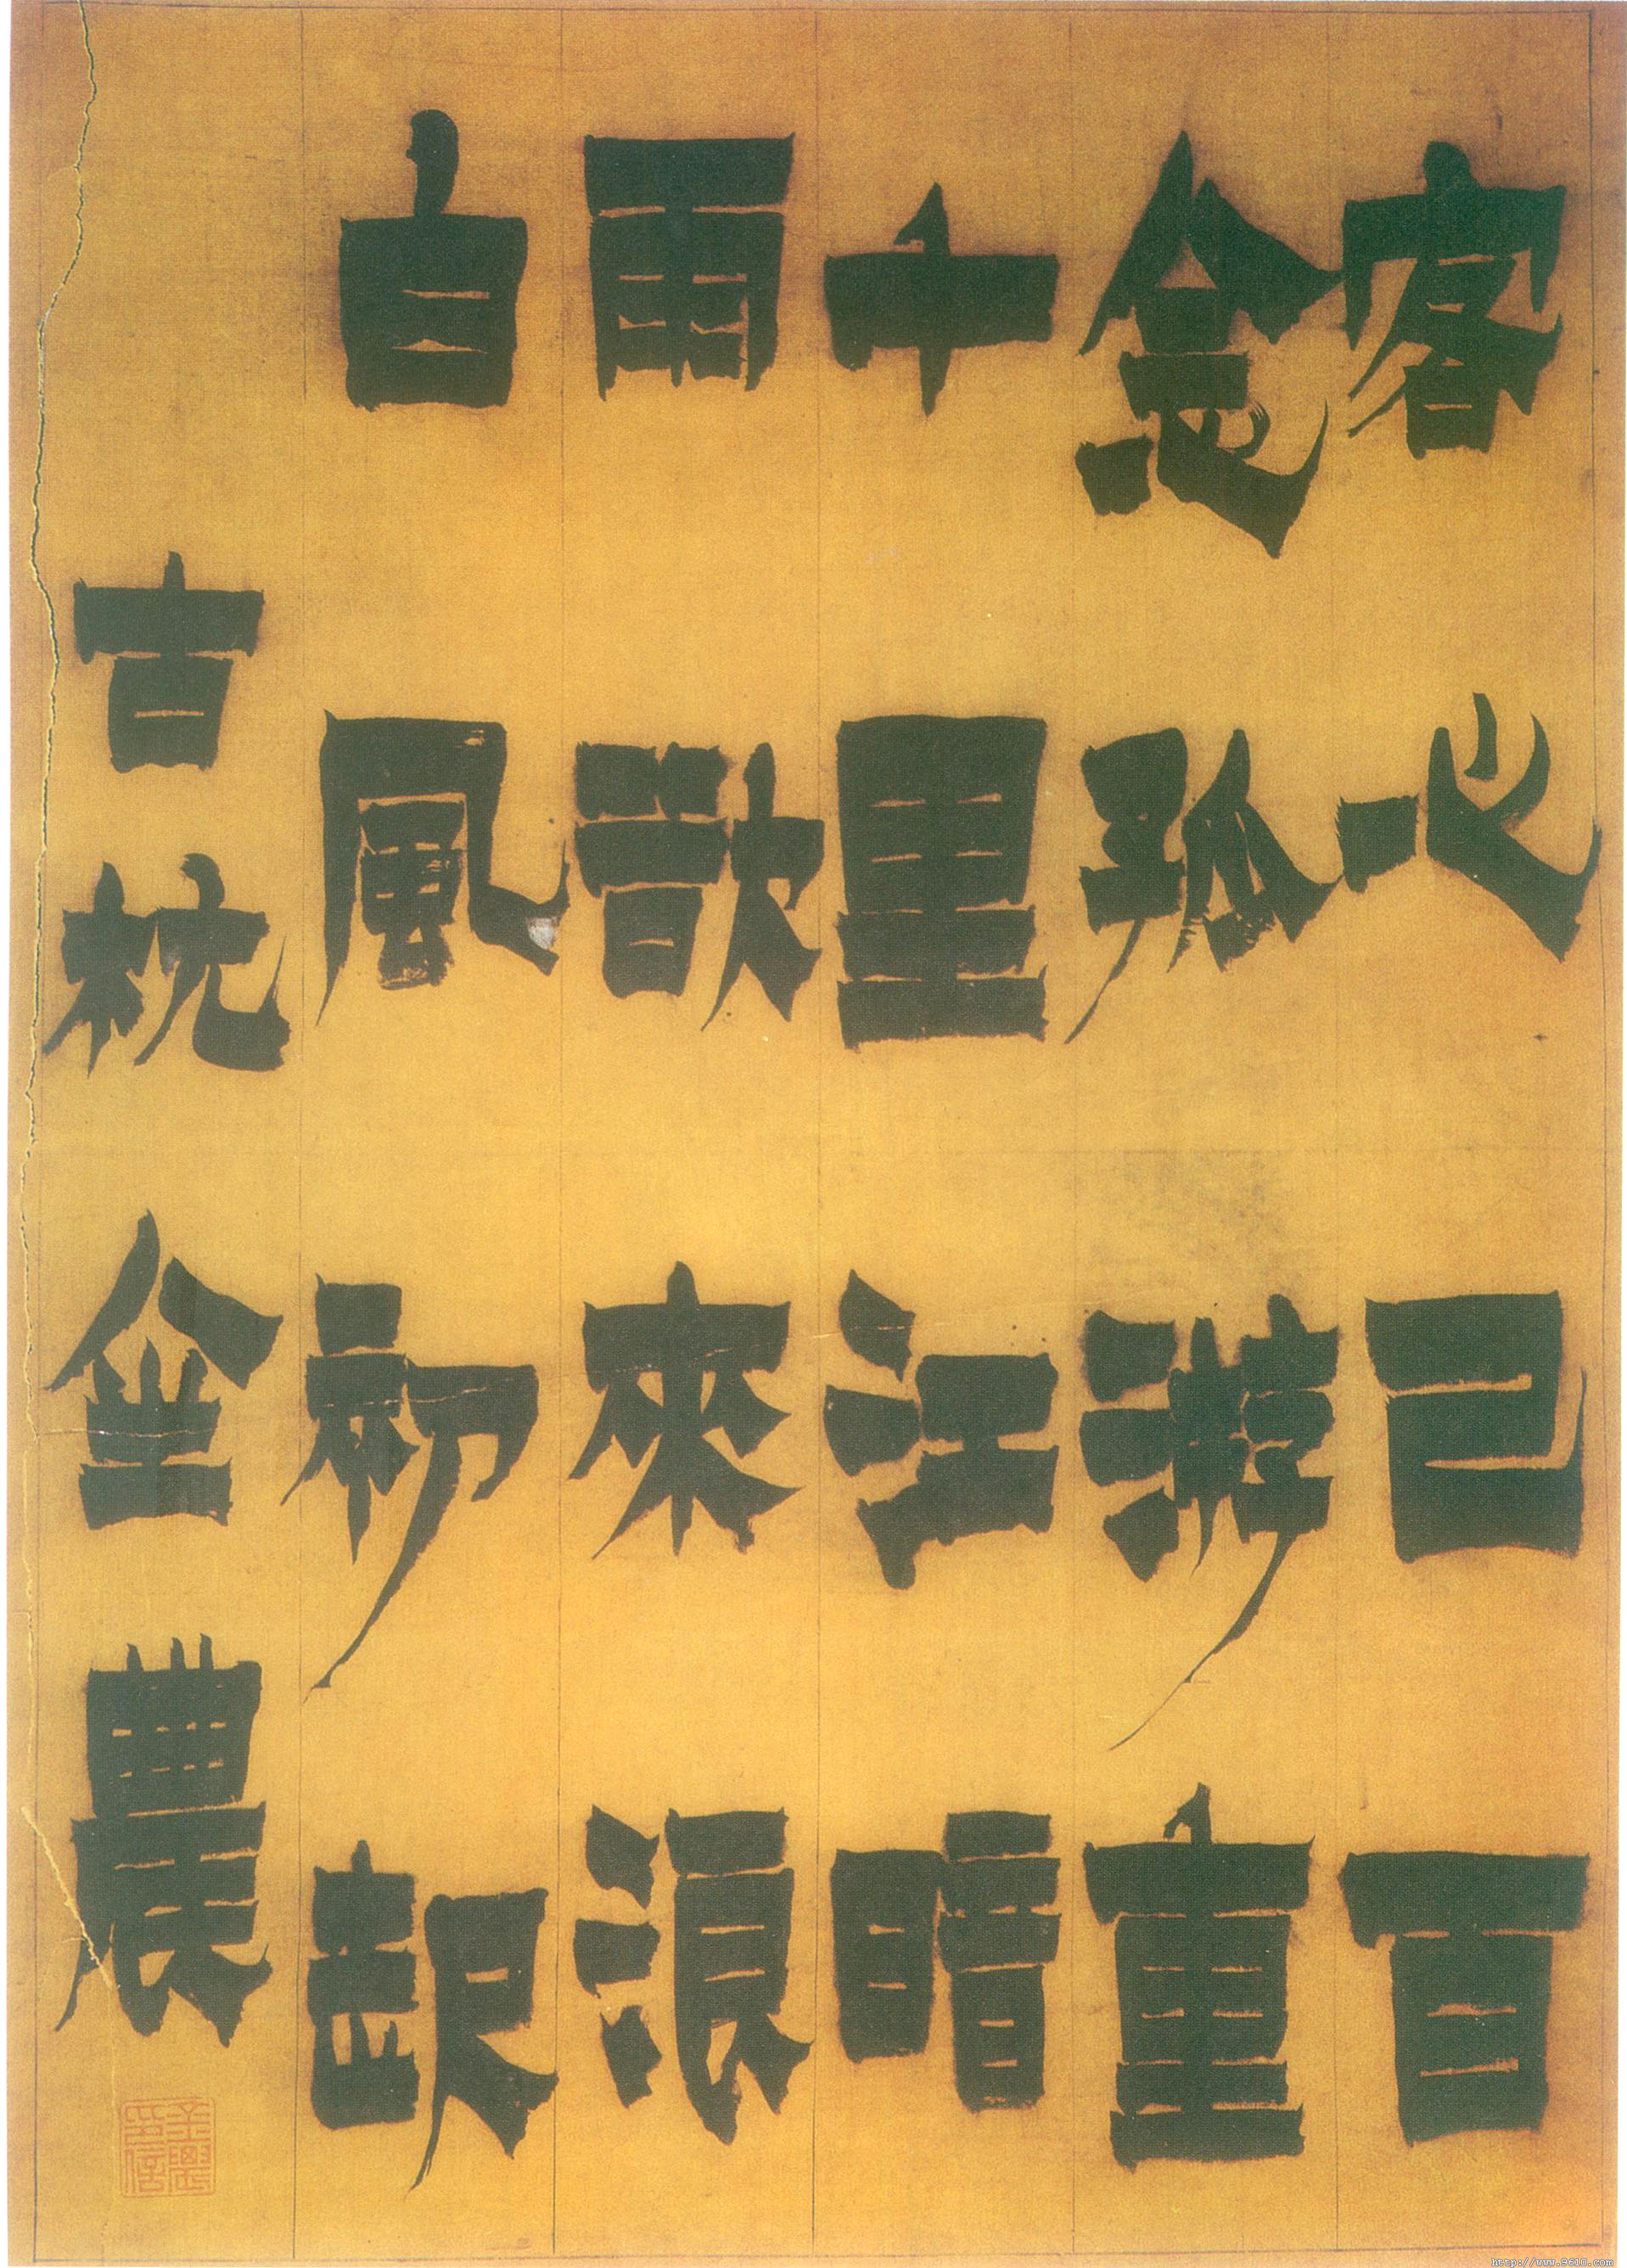 客心已百
念孤游重
千里江暗
雨欲來浪
白風初起
古杭金農
http://www.9610.com